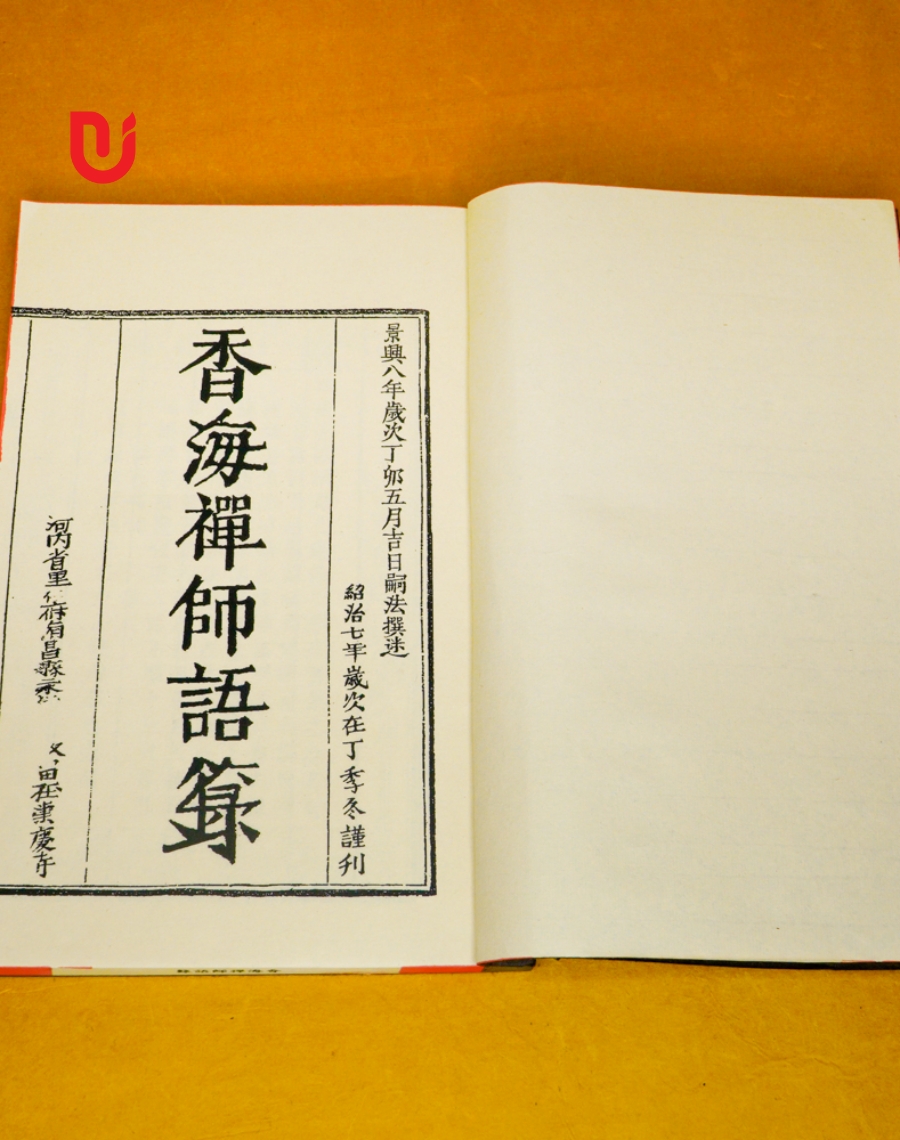 景興八年歲次丁卯五月吉日嗣法撰述
紹治七年歲次在丁季冬謹刊
香海禪師語籙
河内省里 府 昌縣 慶寺